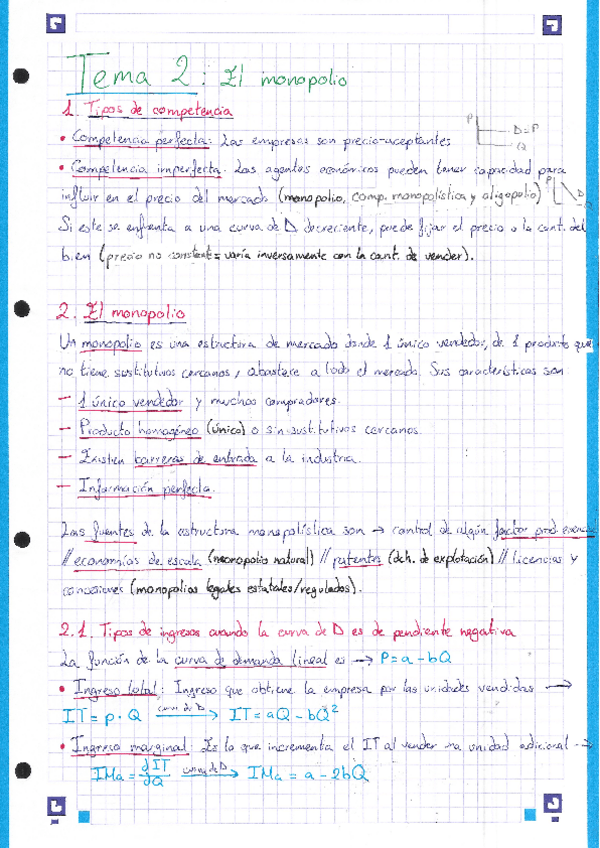 Tema 2: El monopolio
1. Tipos de competencia
• Competencia perfecta: Las empresas son precio-aceptantes
P
D=P
Q
• Competencia imperfecta: Los agentes económicos pueden tener capacidad para
influir en el precio del mercado (monopolio, comp. monopolística y oligopolio)
P
D
Q
Si este se enfrenta a una curva de D decreciente, puede fijar el precio o la cant. del
bien (precio no constante = varía inversamente con la cant. de vender).
2. El monopolio
Un monopolio es una estructura de mercado donde 1 único vendedor, de 1 producto que
no tiene sustitutivos cercanos, abastece a todo el mercado. Sus características son
— 1 único vendedor y muchos compradores.
— Producto homogéneo (único) o sin sustitutivos cercanos.
— Existen barreras de entrada a la industria.
— Información perfecta.
Las fuentes de la estructura monopolística son → control de algún factor prod. esencial
// economías de escala (monopolio natural) // patentes (dch. de explotación) // licencias y
concesiones (monopolios legales estatales/regulados).
2.1. Tipos de ingresos cuando la curva de D es de pendiente negativa
La función de la curva de demanda lineal es → P = a - bQ
• Ingreso total: Ingreso que obtiene la empresa por las unidades vendidas →
IT = p · Q curva de D → IT = aQ - bQ²
• Ingreso marginal: Es lo que incrementa el IT al vender una unidad adicional →
IMa = dIT/dQ curva de D → IMa = a - 2bQ